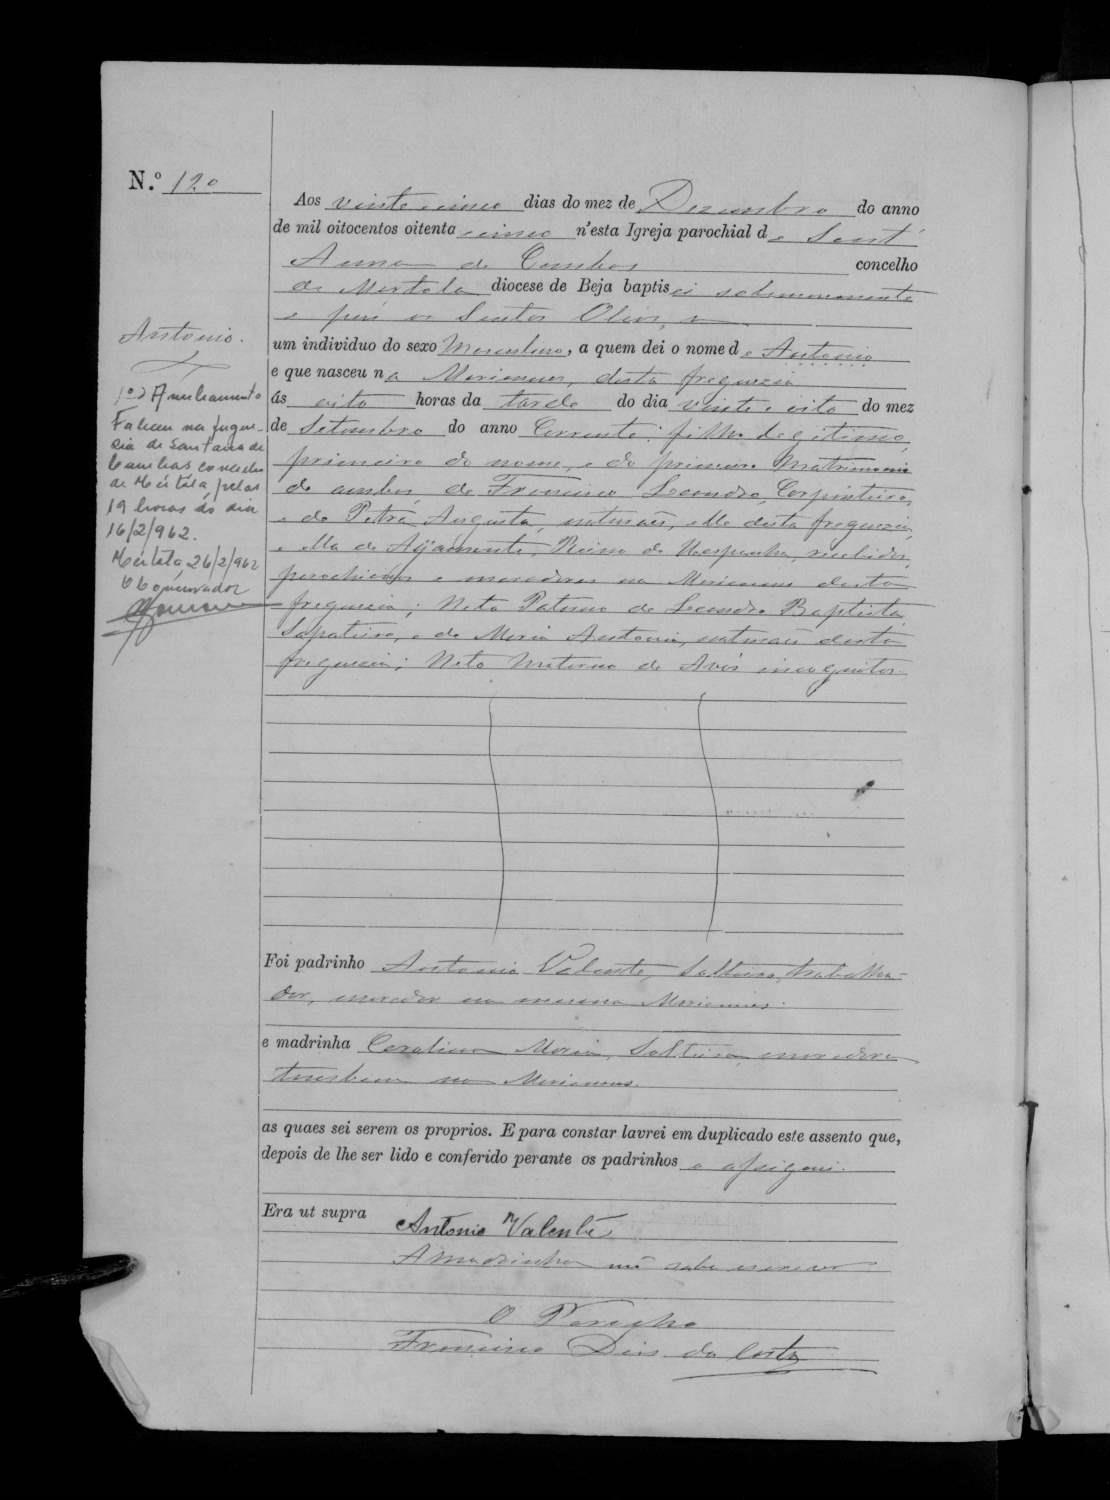 N.º 120
Aos vinte e cinco dias do mez de Dezembro do anno
de mil oitocentos oitenta e cinco n'esta Igreja parochial de Sant'
Anna de Cambas concelho
de Mertola diocese de Beja baptisei solemnemente
e puz os Santos Oleos, a
um individuo do sexo Masculino, a quem dei o nome de Antonio
e que nasceu na Marianas, desta freguezia
ás oito horas da tarde do dia vinte e oito do mez
de Setembro do anno Corrente; filho Legitimo,
primeiro do nome, e do primeiro Matrimonio
de ambos, de Francisco Leandro, Carpinteiro,
e de Petra Augusta, naturaes, elle desta freguezia,
e ella de Ayamonte, Reino de Hespanha, recebidos,
parochianos e moradores na Marianas desta
freguezia; Neto Paterno de Leandro Baptista,
Sapateiro, e de Maria Antonia, naturaes desta
freguezia; Neto Materno de Avós incognitos.
Antonio.
1º) Averbamento
Faleceu na fregue-
sia de Santana de
Cambas concelho
de Mértola, pelas
19 horas do dia
16/2/962.
Mértola, 26/2/962
O Conservador
Foi padrinho Antonio Valente, Solteiro, trabalha-
dor, morador na mesma Marianas.
e madrinha Carolina Maria, Solteira, moradora
tambem na Marianas.
as quaes sei serem os proprios. E para constar lavrei em duplicado este assento que,
depois de lhe ser lido e conferido perante os padrinhos o assignei.
Era ut supra
Antonio Valente
A Madrinha não sabe escrever
O Parocho
Francisco Dias da Costa